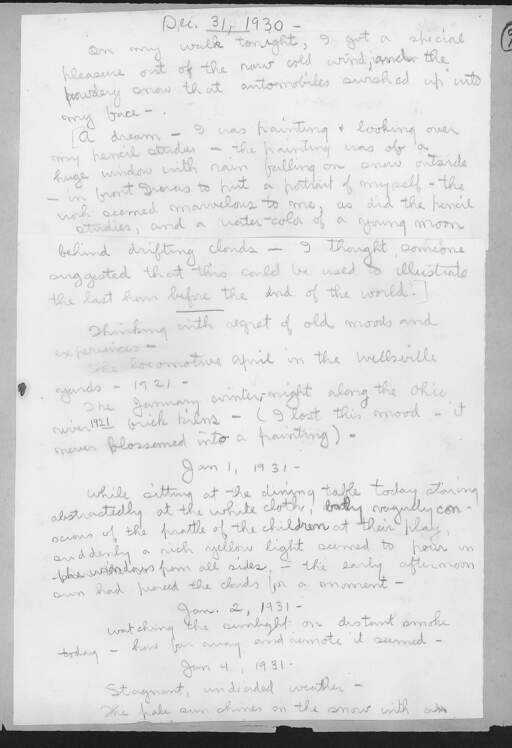 Dec. 31, 1930 -
On my walk tonight, I got a special
pleasure out of the raw cold wind, and the
powdery snow that automobiles swished up into
my face -.
[A dream - I was painting & looking over
my pencil studies - the painting was of a
huge window with rain falling on snow outside
- in front I was to put a portrait of myself - the
work seemed marvelous to me, as did the pencil
studies, and a water-color of a young moon
behind drifting clouds - I thought someone
suggested that this could be used to illustrate
the last hour before the end of the world.]
Thinking with regret of old moods and
experiences -
The locomotive April in the Wellsville
yards - 1921 -
The January winter night along the Ohio
river 1921 brick kilns - (I lost this mood - it
never blossomed into a painting) -
Jan 1, 1931 -
While sitting at the dining table today staring
abstractedly at the white cloth, only vaguely con-
scious of the prattle of the children at their play,
suddenly a rich yellow light seemed to pour in
the windows from all sides, - the early afternoon
sun had pierced the clouds for a moment -
Jan. 2, 1931 -
Watching the sunlight on distant smoke
today - how far away and remote it seemed -
Jan 4, 1931 -
Stagnant, undecided weather -
The pale sun shines on the snow with